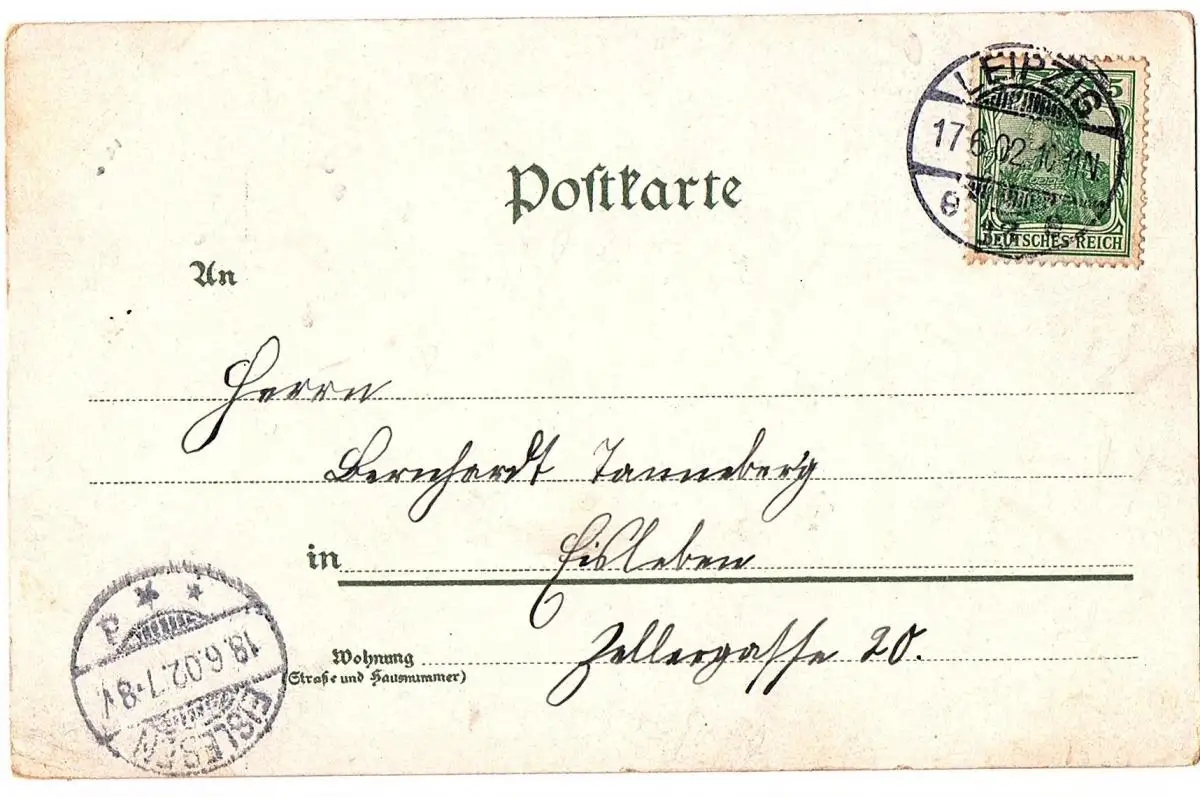 LEIPZIG
5
17.6.02.10-11N
8
DEUTSCHES REICH
Postkarte
An
Herrn
Bernhardt Tanneberg
in Eisleben
Wohnung Zellergasse 20.
(Straße und Hausnummer)
EISLEBEN
18.6.02.7-8V